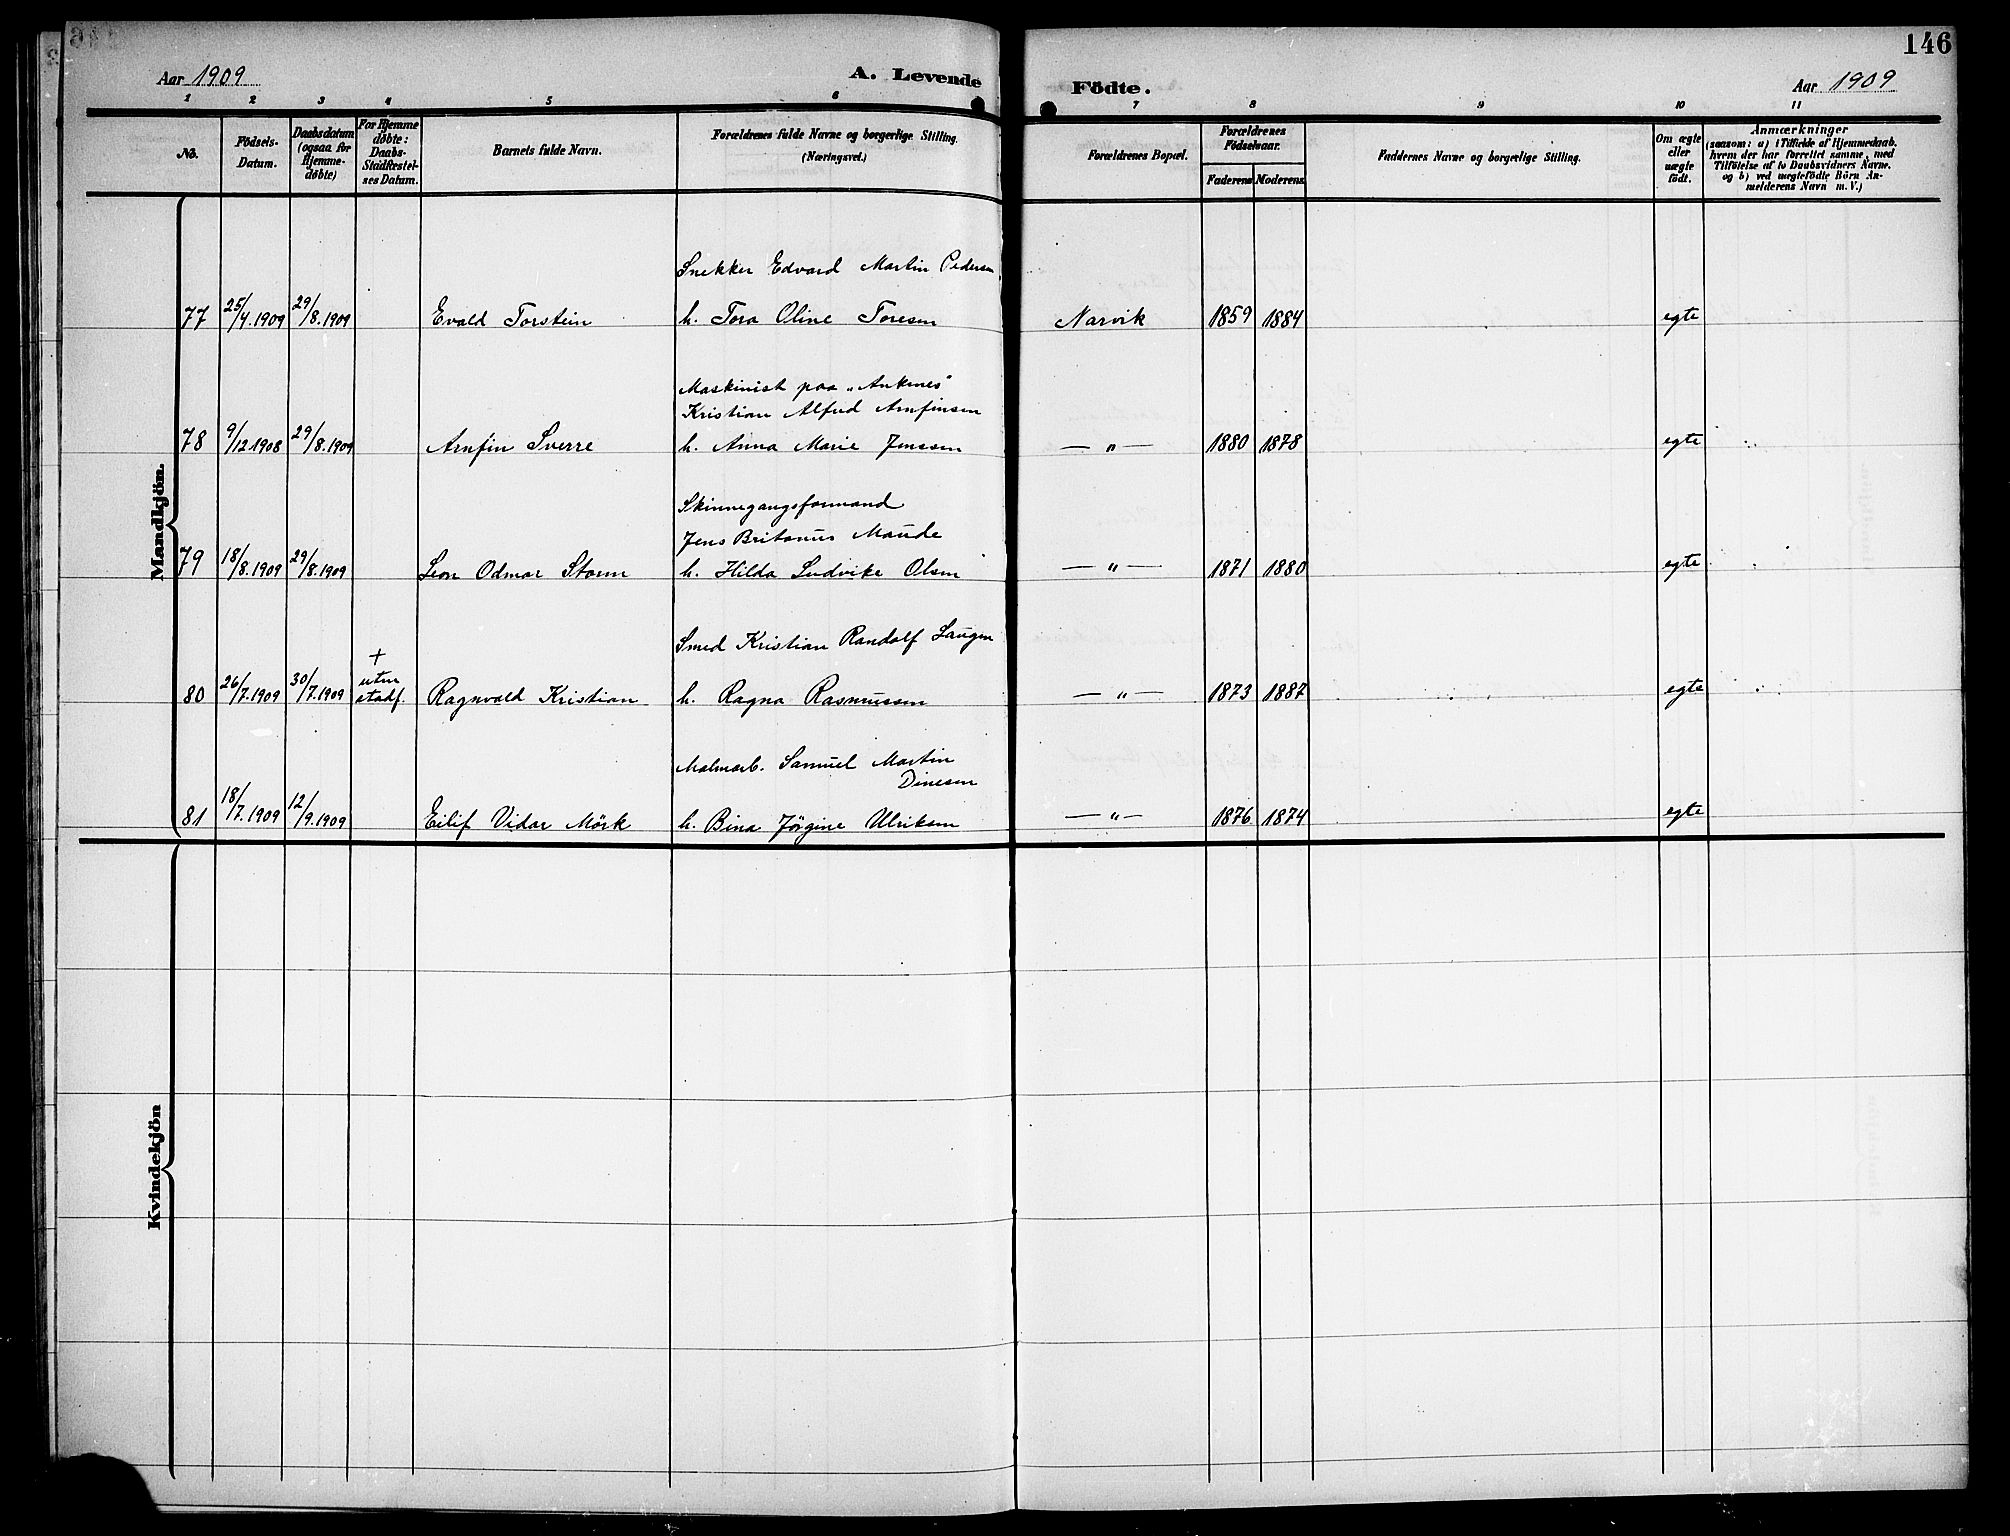 146
Aar 1909
A. Levende Födte.
Aar 1909
1 2 3 4 5 6 7 8 9 10 11
No.
Födsels-Datum.
Daabsdatum (ogsaa for Hjemme-døbte)
For Hjemme døbte: Daabs-Stadfæstel-ses Datum.
Barnets fulde Navn.
Forældrenes fulde Navne og borgerlige Stilling.
(Næringsvei.)
Forældrenes Bopæl.
Forældrenes Födselsaar.
Faderens Moderens
Faddernes Navne og borgerlige Stilling.
Om ægte eller uægte födt.
Anmærkninger
(saasom: a) i Tilfælde af Hjemmedaab, hvem der har forrettet samme, med Tilföielse af to Daabsvidners Navne, og b) ved uægtefödte Börn An-melderens Navn m. V.)
Mandkjön.
Snekker Edvard Martin Pedersen
77 25/4.1909 29/8.1909 Evald Torstein h. Tora Oline Toresen Narvik 1859 1884 egte
Maskinist paa „Ankenes"
Kristian Alfred Arnfinsen
78 9/12 1908 29/8.1909 Arnfin Sverre h. Anna Marie Jenssen — „ — 1880 1878 egte
Skinnegangsformand
Jens Britanus Maude
79 18/8.1909 29/8.1909 Leon Odmar Storm h. Hilda Ludvike Olsen — „ — 1871 1880 egte
Smed Kristian Randolf Laugen
+
uten
80 26/7.1909 30/7.1909 stadf. Ragnvald Kristian h. Ragna Rasmussen — „ — 1873 1887 egte
Malmarb. Samuel Martin
Dinesen
81 18/7.1909 12/9.1909 Eilif Vidar Mörk h. Bina Jørgine Ulriksen — „ — 1876 1874 egte
Kvindekjön